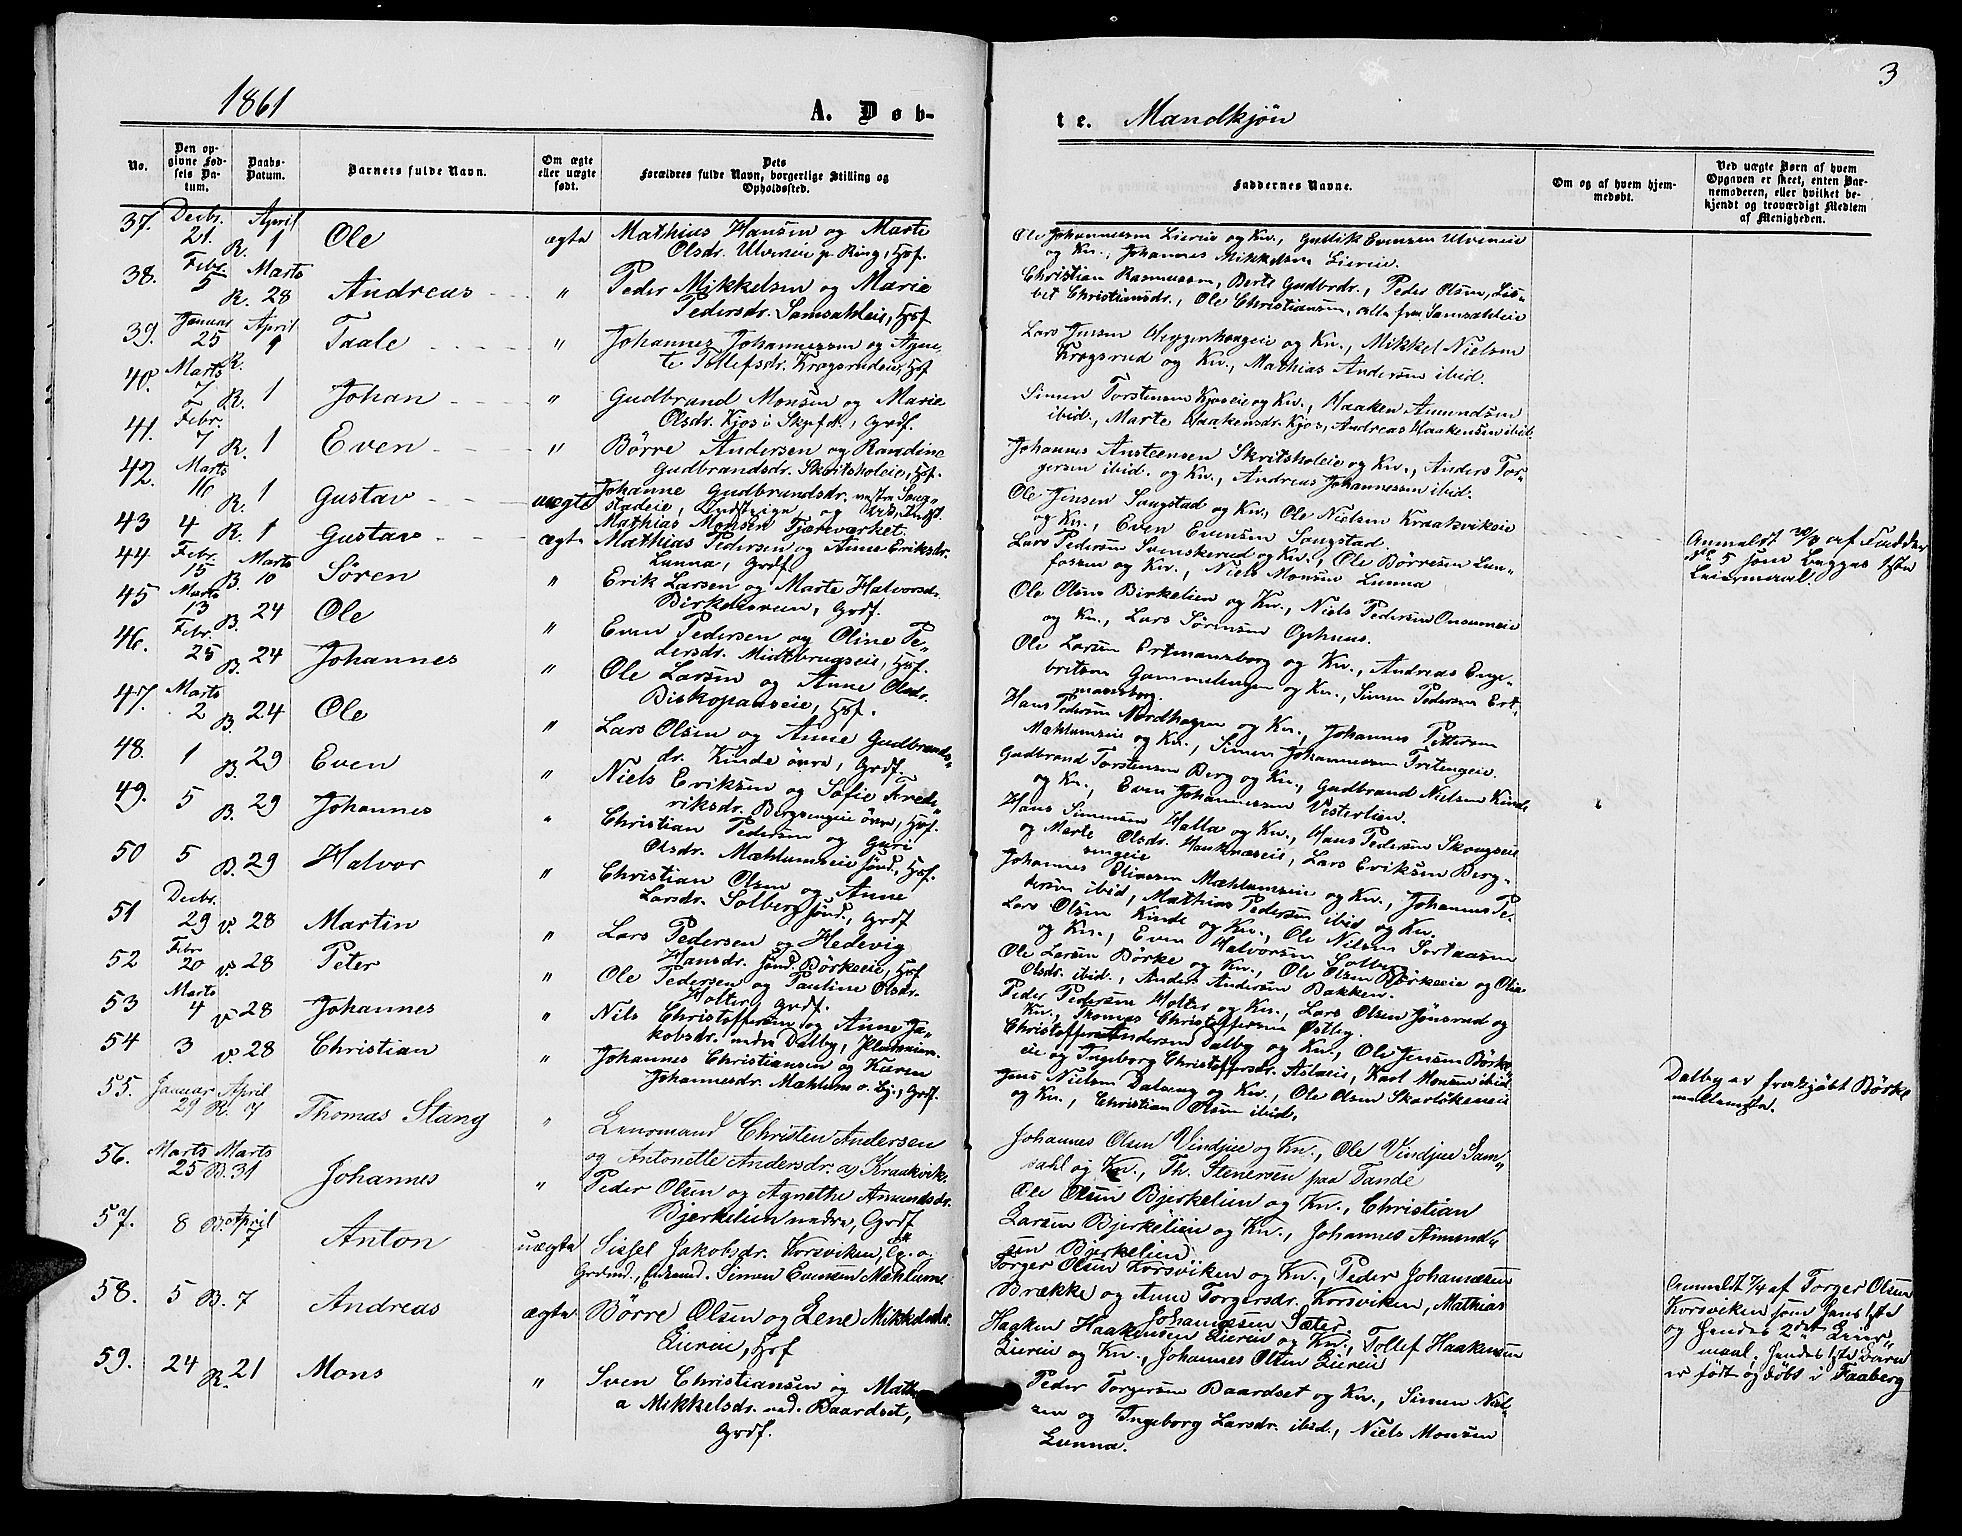 1861
A. Døb-
No.
Den op-
givne Fød-
sels Da-
tum.
Daabs-
Datum.
Barnets fulde Navn.
Om ægte
eller uægte
født.
Dets
Forældres fulde Navn, borgerlige Stilling og
Opholdssted.
37. Decbr. 21. R. April 1 Ole ægte Mathias Hansen og Marte
Olsdr. Ulvineie p. Ring, Hof.
38. Febr. 5 R. Marts 28 Andreas " Peder Mikkelsen og Marie
Pedersdr. Samsahleie, Hof
39. Januar 25 R. April 1 Taale " Johannes Johannessen og Agne-
te Tollefsdr. Krogsrudeie, Hof
40. Marts 7 R. 1 Johan " Gudbrand Monsen og Marie
Olsdr. Kjos i Grdf.
41. Febr. 7 R. 1 Even " Börre Andersen og Randine
Gudbrandsdr. Skritsholeie, Hof.
42. Marts 16 R. 1 Gustav uægte Johanne Gudbrandsdr. Saug-
stadeie, og
Mathias Monsen
43 4 R. 1 Gustav ægte Mathias Pedersen og Anne Eriksdr.
Lunna, Grdf.
44. Febr. 15 B. Marts 10 Sören " Erik Larsen og Marte Halvorsdr.
Birkelisveen, Grdf.
45 Marts 13 B. 24 Ole " Even Pedersen og Oline Pe-
dersdr. Midtbrugseie, Hof.
46. Febr. 25 B. 24 Johannes " Ole Larsen og Anne Olsdr.
Biskopaaseie, Hof.
47. Marts 2 B. 24 Ole " Lars Olsen og Anne Gudbrands-
dr. Kinde övre, Grdf.
48. 1 B. 29 Even " Niels Eriksen og Sofie Fred-
riksdr. Bergsengeie övre, Hof.
49. 5 B. 29 Johannes " Christian Pedersen og Guri
Olsdr. Mæhlumseie sönd., Hof.
50 5 B. 29 Halvor " Christian Olsen og Anne
Larsdr. Solberg sönd., Grdf
51 Decbr. 29 v. 28 Martin " Lars Pedersen og Hedevig
Hansdr. sönd. Börkeeie, Hof
52 Febr 20 v. 28 Peter " Ole Pedersen og Pauline Olsdr.
Holter, Grdf.
53 Marts 4 v. 28 Johannes " Nils Christoffersen og Anne Ja-
kobsdr. nedre Dalby,
54 3 v. 28 Christian " Johannes Christiansen og Karen
Johannesdr. Mæhlum ö. Grdf.
55. Januar 29 R. April 7 Thomas Stang " Lensmand Christen Andersen
og Antonette Andersdr. af Kraakvik.
56. Marts 25 B. Marts 31 Johannes " Peder Olsen og Agnethe Amundsdr.
Bjerkelien nedre, Grdf
57. 8 B. April 7 Anton uægte Sissel Jakobsdr. Korsviken,
Simen Evensen Mæhlum.
58. 5 B. 7 Andreas ægte Börre Olsen og Lene Mikkelsdr.
Liereie, Hof
59. 24 R. 21 Mons " Sven Christiansen og Math-
a Mikkelsdr. ned. Baardset,
Grdf.
3
te. Mandkjön
Faddernes Navne.
Om og af hvem hjem-
medøbt.
Ved uægte Børn af hvem
Opgaven er skeet, enten Bar-
nemoderen, eller hvilket be-
kjendt og troværdigt Medlem
af Menigheden.
Ole Johannessen Liereie og Kn., Gudlik Evensen Ulvineie
og Kn., Johannes Mikkelsen Liereie.
Christian Rasmussen, Berte Gudbrdr., Peder Olsen, Lis-
bet Christiansdr., Ole Christiansen, alle fra Samsahleie
Lars Jensen Heggenhaugeie og Kn., Mikkel Nielsen
Krogsrud og Kn., Mathias Andersen ibid.
Simen Torstensen Kjoseie og Kn., Haaken Amundsen
ibid., Marte Haakensdr. Kjos, Andreas Haakensen ibid.
Johannes Austeensen Skritsholeie og Kn., Anders Tor-
gersen ibid. og Kn., Andreas Johannessen ibid.
Ole Jensen Saugstad og Kn., Ole Nielsen Kraakvikeie
og Kn., Even Evensen Saugstad.
Lars Pedersen Svenskerud og Kn., Ole Börresen Lun-
fossen og Kn., Niels Monsen Lunna
Ole Olsen Birkelien og Kn., Niels Pedersen Onsumeie
og Kn., Lars Sörensen Ophuus.
Ole Larsen Ertmansborg og Kn., Andreas Enge-
bretsen Gammelengen og Kn., Simen Pedersen Ert-
mansborg.
Hans Pedersen Nordhagen og Kn., Johannes Pettersen
Mæhlumseie og Kn., Simen Johannessen Fritengeie.
Gudbrand Torstensen Berg og Kn., Gudbrand Nielsen Kinde
og Kn., Even Johannessen Vesterlien.
Hans Simensen Halla og Kn., Hans Pedersen Skougseie
og Marte Olsdr. Hauknæseie, Lars Eriksen Berg-
sengeie
Johannes Eliassen Mæhlumseie og Kn., Johannes Pe-
dersen ibid, Mathias Pedersen ibid og Kn.
Lars Olsen Kinde og Kn., Ole Nilsen Sortaasen
og Kn., Even Halvorsen Solberg
Ole Larsen Börke og Kn., Ole Olsen Börkeeie og Olia
Olsdr. ibid., Anders Andersen Bakken.
Peder Pedersen Holter og Kn., Lars Olsen Jönsrud og
Kn., Thomas Christoffersen Østby.
Christoffer Andersen Dalby og Kn., Ole Jensen Börke-
eie og Ingeborg Christoffersdr. Aslaeie, Karl Monsen ibid
Jens Nielsen Dateng og Kn., Ole Olsen Skarlökeneie
og Kn., Christian Olsen ibid.
Johannes Olsen Vindjue og Kn., Ole Vindjue Sam-
sahl og Kn., Th. Stenersen paa Tande
Ole Olsen Bjerkelien og Kn., Christian
Larsen Bjerkelien og Kn., Johannes Amund-
sen Bjerkelien
Torger Olsen Korsviken og Kn., Peder Johannesen
Brække og Anne Torgersdr. Korsviken, Mathias
Johannesen Sæter
Haaken Haakensen Liereie og Kn., Tollef Haakensen
Liereie og Kn., Johannes Olsen Liereie
Peder Torgersen Baardset og Kn., Simen Niel-
sen og Ingeborg Larsdr. ibid., Niels Monsen
Lunna.
Anmeldt af Fadder
No 5 som Begges 1ste
Leiermaal
Dalby er frakjöbt Börke
mellemste.
Anmeldt 7/4 af Torger Olsen
Korsviken som hans 1ste
og hendes 2det Leier-
maal; hendes 1ste Barn
er födt og döbt i Faaberg